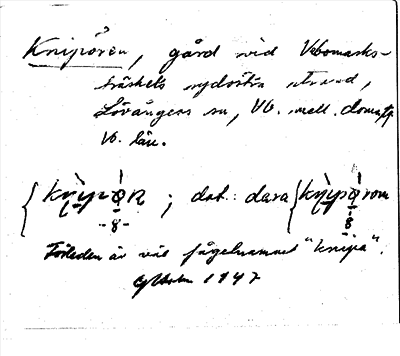 Knipören, gård vid Vebomarks-
träskets sydöstra strand,
Lövångers sn, Vb. mell. domsg.
Vb. län.
knipörn; dat.: dara knipörom
Förleden är väl fågelnamnet "knipa".
1947